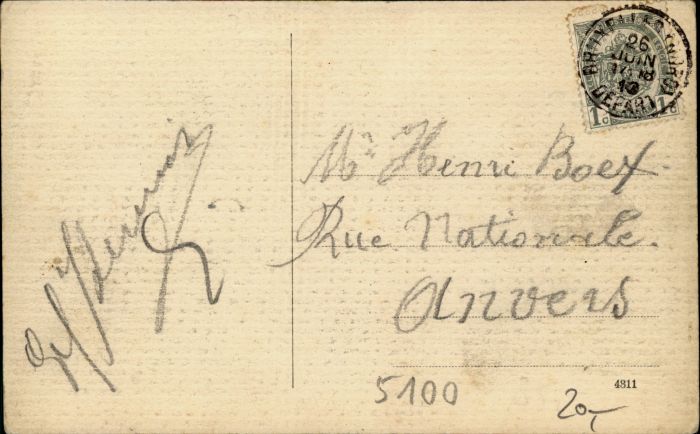 BRUXELLES (NORD)
26
JUIN
DÉPART
1c 1c
Mr Henri Boex.
Rue Nationale.
Anvers
5100
4311
20,-